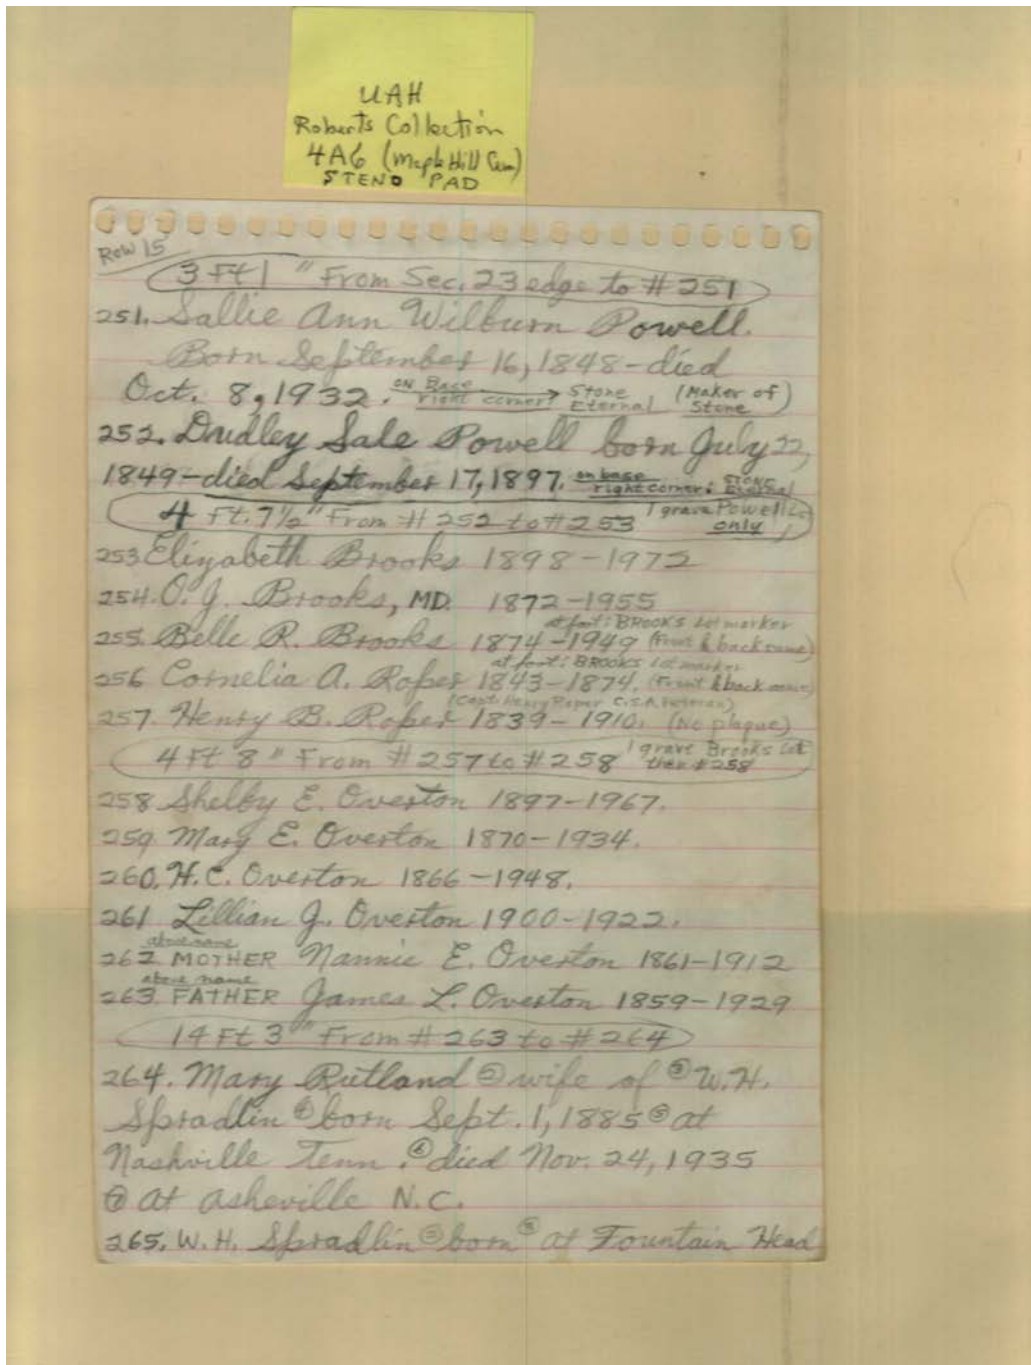 UAH
Roberts Collection
4A6 (Maple Hill Cem)
STENO PAD
Row 15
3 Ft 1 " From Sec. 23 edge to # 251
251. Sallie Ann Wilburn Powell.
Born September 16, 1848 - died
Oct. 8, 1932. on Base right corner: → Stone Eternal (Maker of Stone)
252. Dudley Sale Powell born July 22,
1849 - died September 17, 1897. on base right corner: STONE Eternal
4 Ft. 7 1/2" From # 252 to # 253 1 grave Powell Lot only
253 Elizabeth Brooks 1898 - 1972
254. O. J. Brooks, MD. 1872 - 1955
at foot: BROOKS Lot marker
255. Belle R. Brooks 1874 - 1949 (Front & back same)
at foot: BROOKS Lot marker
256 Cornelia A. Roper 1843 - 1874. (Front & back same)
(Capt. Henry Roper C.S.A. veteran)
257. Henry B. Roper 1839 - 1910. (No plaque)
4 Ft 8 " From # 257 to # 258 1 grave Brooks Lot then # 258
258 Shelby E. Overton 1897-1967.
259. Mary E. Overton 1870 - 1934.
260. H. C. Overton 1866 - 1948.
261 Lillian J. Overton 1900 - 1922.
above name
262 MOTHER Nannie E. Overton 1861-1912
above name
263. FATHER James L. Overton 1859 - 1929
14 Ft 3 " From # 263 to # 264
264. Mary Rutland ② wife of ③ W. H.
Spradlin ④ born Sept. 1, 1885 ⑤ at
Nashville Tenn. ⑥ died Nov. 24, 1935
⑦ at Asheville N.C.
265. W. H. Spradlin ② born ③ at Fountain Head